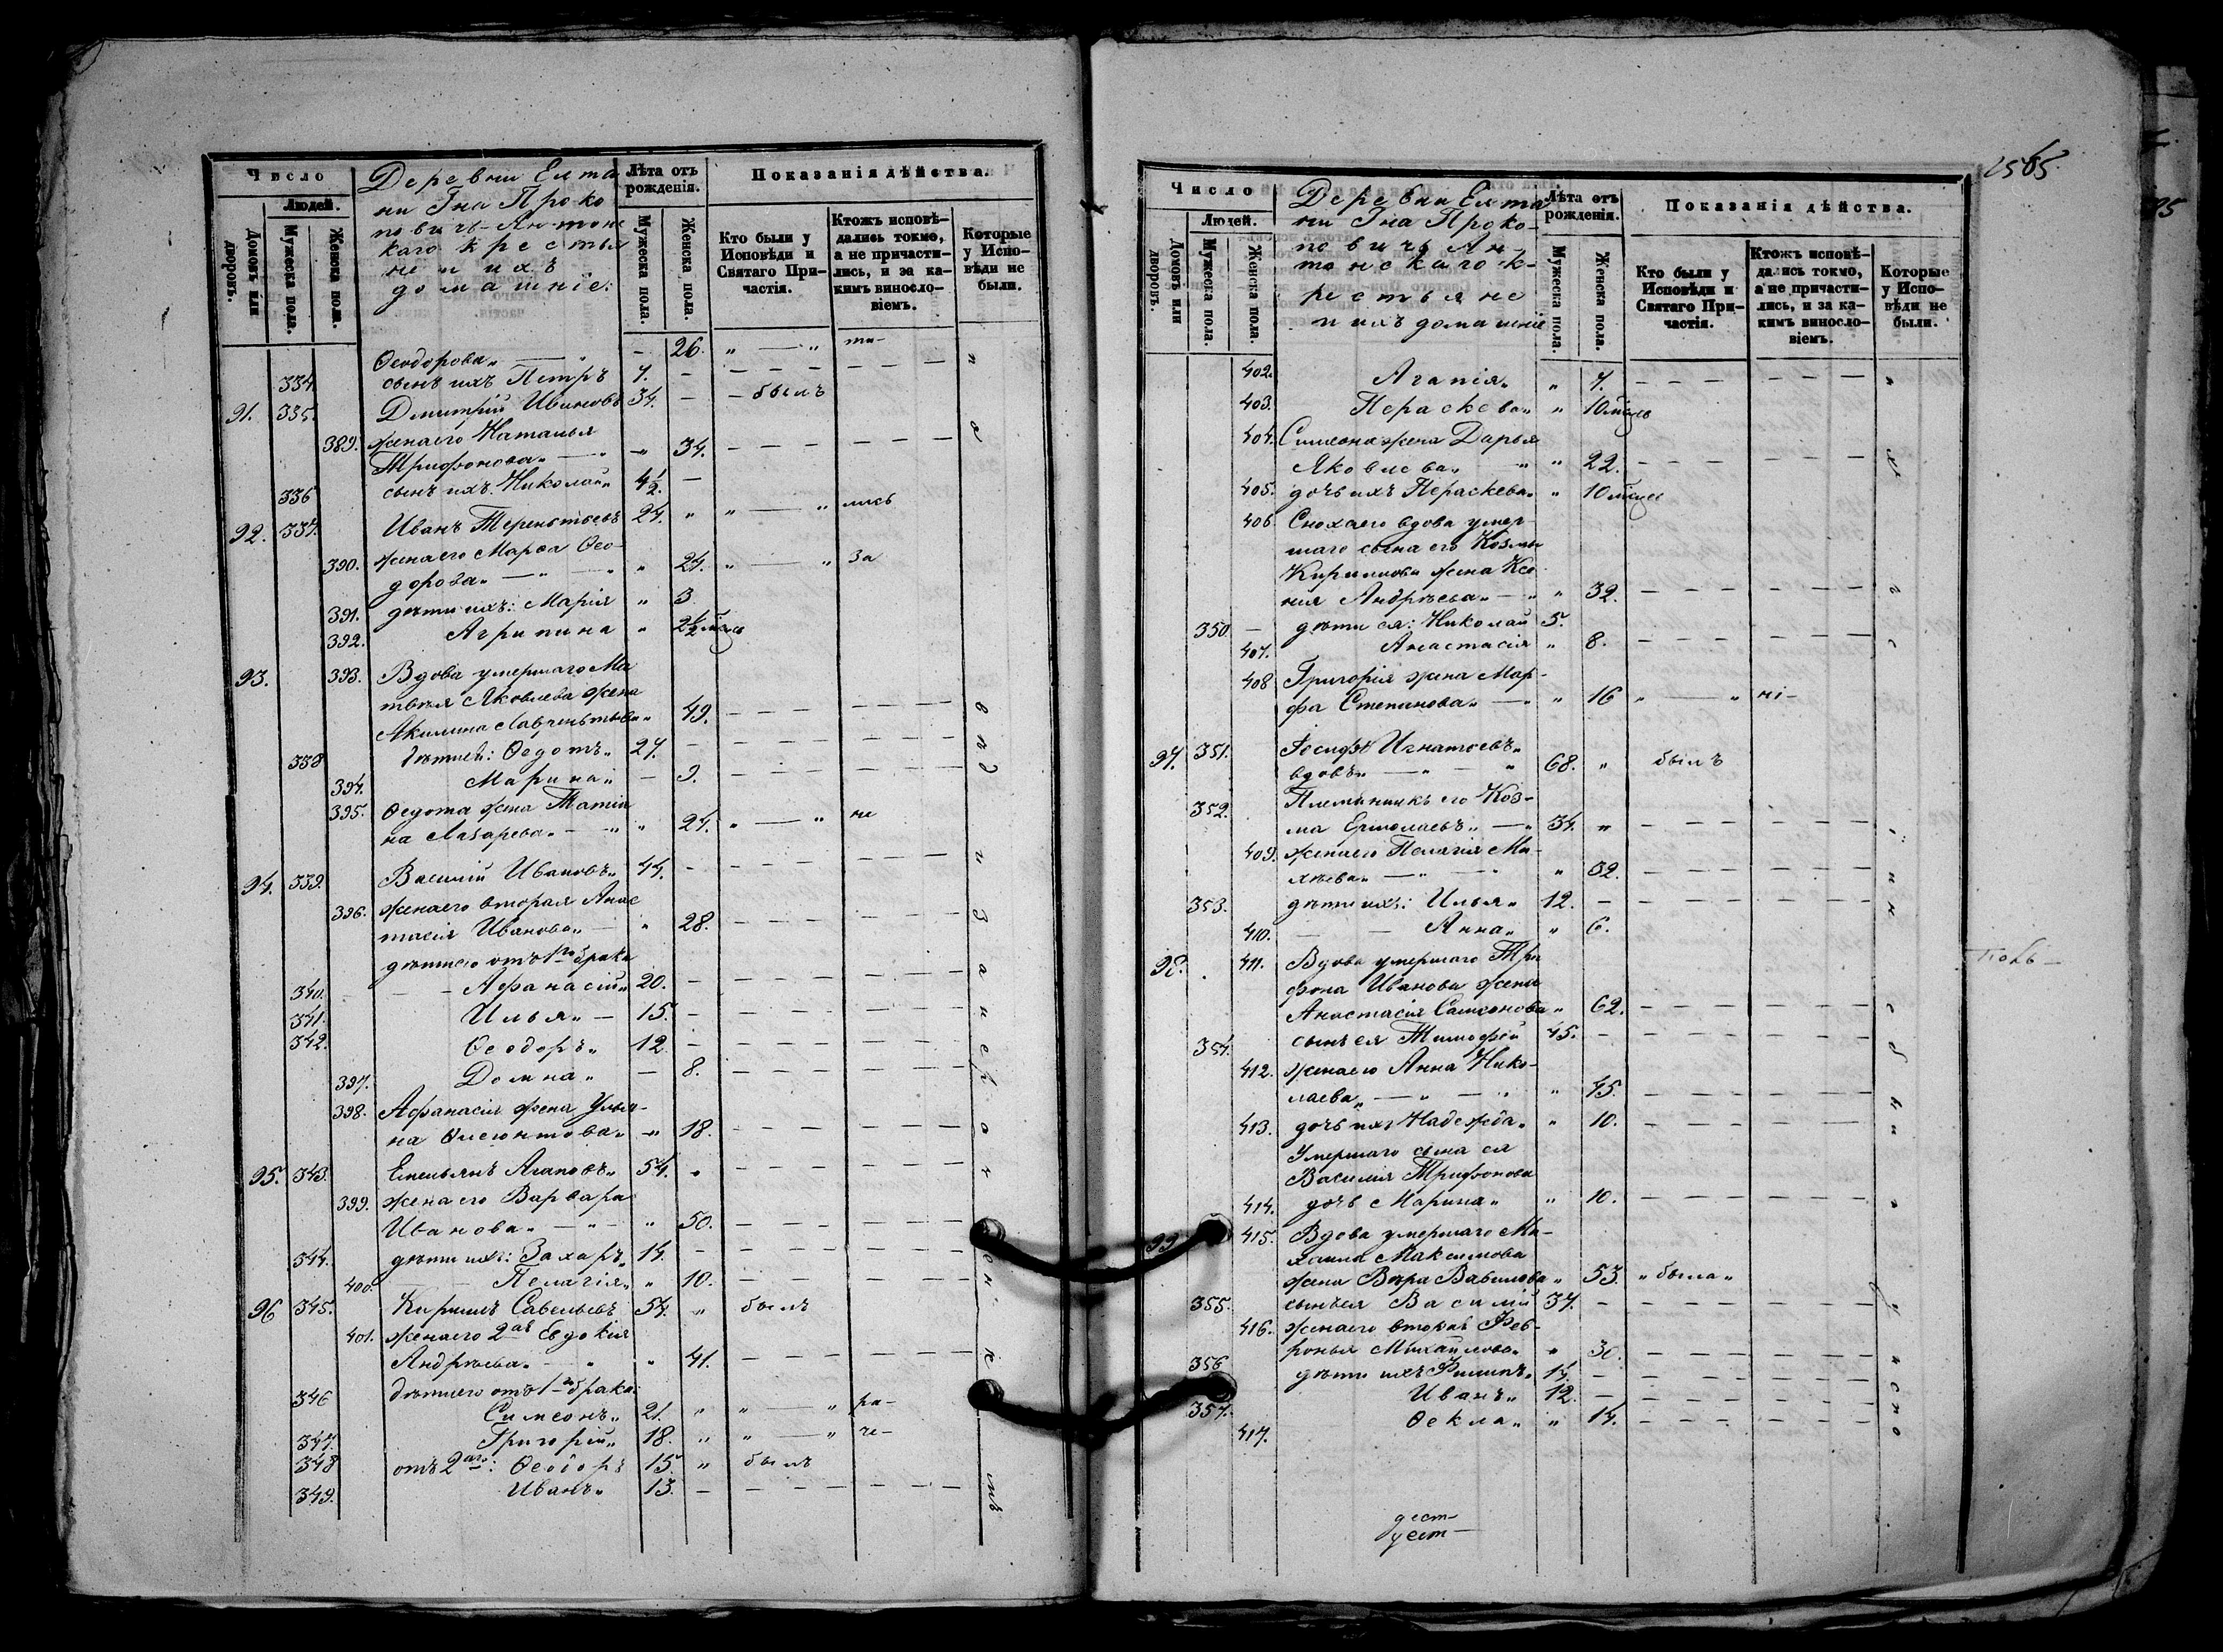 Число
Людей.
Домовъ или дворовъ.
Мужеска пола.
Женска пола.
Деревни Елта
ни Гна Проко
повичъ-Антонс
каго кресть
не и ихъ
домашніе:
Лѣта отъ рожденія.
Мужеска пола.
Женска пола.
Показанія дѣйства.
Кто были у Исповѣди и Святаго Причастія.
Ктожъ исповѣдались токмо, а не причастились, и за какимъ винословіемъ.
Которые у Исповѣди не были.
Ѳеодорова „ — „ - 26. „ — „
334. сынъ ихъ Петръ 7. -
91. 335. Дмитрій Ивановъ 34. - - былъ
389. жена его Наталья
Трифонова „ — „ 34.
336 сынъ ихъ Николай „ 4½. -
92. 337. Иванъ Терентьевъ 24. „ „ — „ лись
390. жена его Марѳа Ѳео-
дорова „ — „ „ 24. „ — „ за
391. дѣти ихъ: Марія „ 3
392. Агрипина „ 2½
93. 393. Вдова умершаго Ма
твѣя Яковлева жена
Акилина Лаврентьева „ 49.
338 дѣти ея: Ѳедотъ „ 27. -
394. Марина „ - 9.
395. Ѳедота жена Татія
на Лазарева „ — „ „ 24. „ — „ не
94. 339. Василій Ивановъ „ 44. -
396. жена его вторая Анас
тасія Иванова „ — „ 28.
дѣти его отъ 1го брака
340. Афанасій „ 20. -
341. Илья „ — 15. -
342. Ѳеодоръ „ 12 -
397. Домна „ — 8.
398. Афанасія жена Улья-
на „ 18.
95. 343. Емельянъ Агаповъ „ 54. „
399. жена его Варвара
Иванова „ — „ „ 50.
344. дѣти ихъ: Захаръ „ 14. -
400. Пелагія „ „ 10.
96 345. Кирилъ Савельевъ 54. „ былъ
401. жена его 2ая Евдокія
Андрѣева „ — „ „ 41.
346 дѣти его отъ 1го брака:
Симеонъ „ 21. „ „ — „ ра-
347. Григорій „ 18. „ „ — „ че-
348 отъ 2аго: Ѳеодоръ 15. „ былъ
349. Иванъ „ 13. -
Число
Людей.
Домовъ или дворовъ.
Мужеска пола.
Женска пола.
Деревни Елта
ни Гна Проко-
повичъ Ан-
тонскаго к-
рестьяне
и ихъ домашніе
Лѣта отъ рожденія.
Мужеска пола.
Женска пола.
Показанія дѣйства.
Кто были у Исповѣди и Святаго Причастія.
Ктожъ исповѣдались токмо, а не причастились, и за какимъ винословіемъ.
Которые у Исповѣди не были.
402. Агапія „ „ 7.
403. Пераскева „ „ 10
404. Симеона жена Дарья
Яковлева „ „ „ 22.
405. дочь ихъ Пераскева „ „ 10
406 Сноха его вдова умер-
шаго сына его Козмы
Кирилова жена Ксе
нія Андрѣева „ — „ „ 32.
350. дѣти ея: Николай 5.
407. Анастасія „ 8.
408 Григорія жена Мар-
фа Степанова „ — „ „ 16 „ — „ ні-
97. 351. Іосифъ Игнатьевъ „
вдовъ „ — „ — „ 68. „ былъ
352. Племянникъ его Коз-
ма Ермолаевъ „ — „ 34. „
409. жена его Пелагія Ми-
хѣева „ — „ — „ „ 32.
353. дѣти ихъ: Илья „ 12. -
410. Анна „ „ 6.
98. 411. Вдова умершаго Три
фона Иванова жена
Анастасія Самсонова „ 62.
354. сынъ ея Тимофей 45. -
412. жена его Анна Нико-
лаева „ — „ — „ „ 45.
413. дочь ихъ Надежда „ „ 10.
Умершаго сына ея
Василія Трифонова
414. дочь Марина „ „ 10.
99 415. Вдова умершаго Ми-
хаила Максимова
жена Вѣра Вавилова „ 53. „ была „
355. сынъ ея Василій 37. -
416. жена его вторая Фев-
ронья Михайлова „ „ 30.
356 дѣти ихъ Филипъ „ 14. -
357. Иванъ „ 12. -
417. Ѳекла „ „ 14.